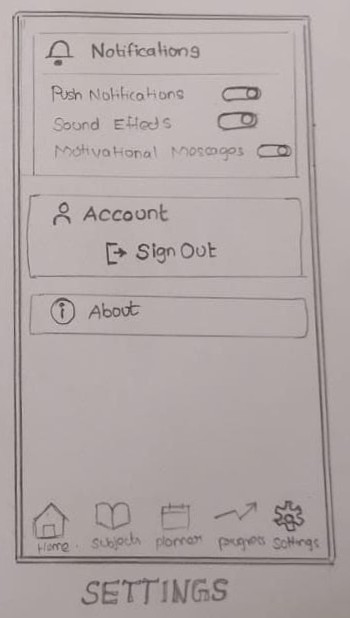 Notifications
Push Notifications
Sound Effects
Motivational Messages
Account
Sign Out
About
Home Subjects planner progress Settings
SETTINGS